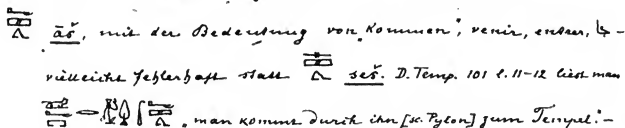 āš, mit der Bedeutung von „Kommen", venir, entrer,
vielleicht fehlerhaft statt seš. D. Temp. 101 l. 11-12 liest man
„man kommt durch ihn [sc. Pylon] zum Tempel:–